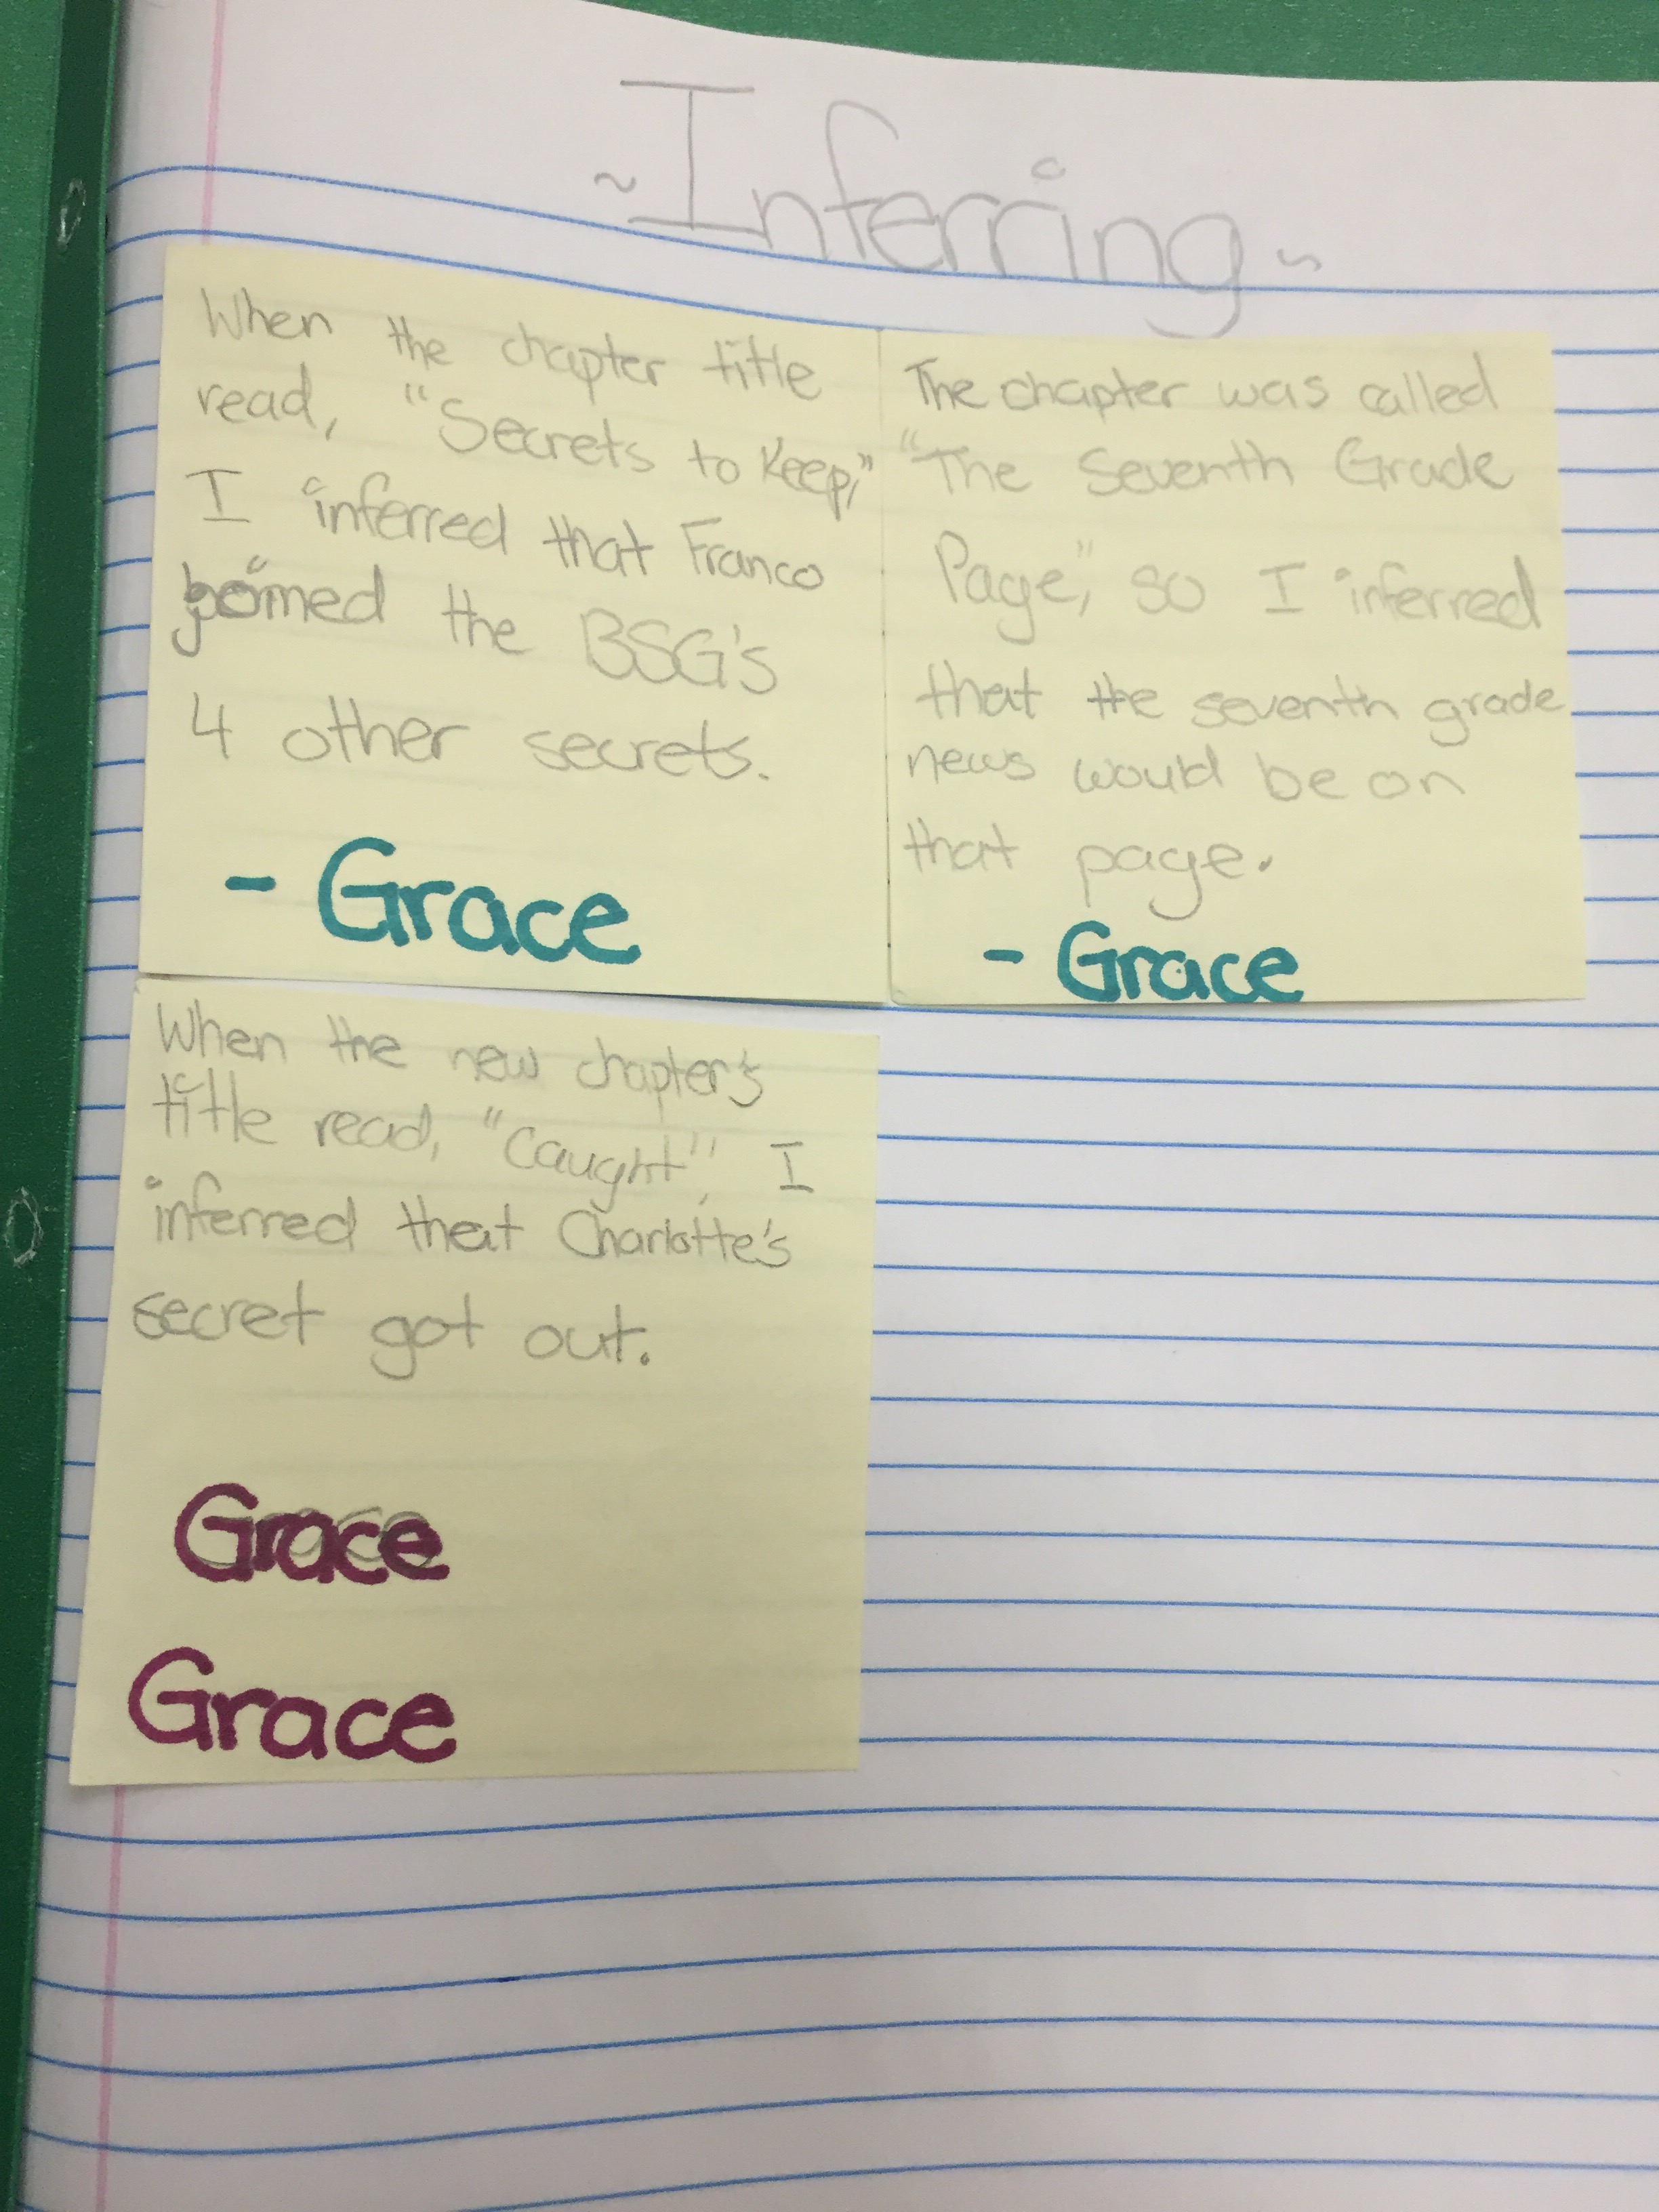 ~Inferring~
When the chapter title
read, "Secrets to Keep,"
I inferred that Franco
joined the BSG's
4 other secrets.
- Grace
The chapter was called
"The Seventh Grade
Page," so I inferred
that the seventh grade
news would be on
that page.
- Grace
When the new chapter's
title read, "Caught", I
inferred that Charlotte's
secret got out.
Grace
Grace